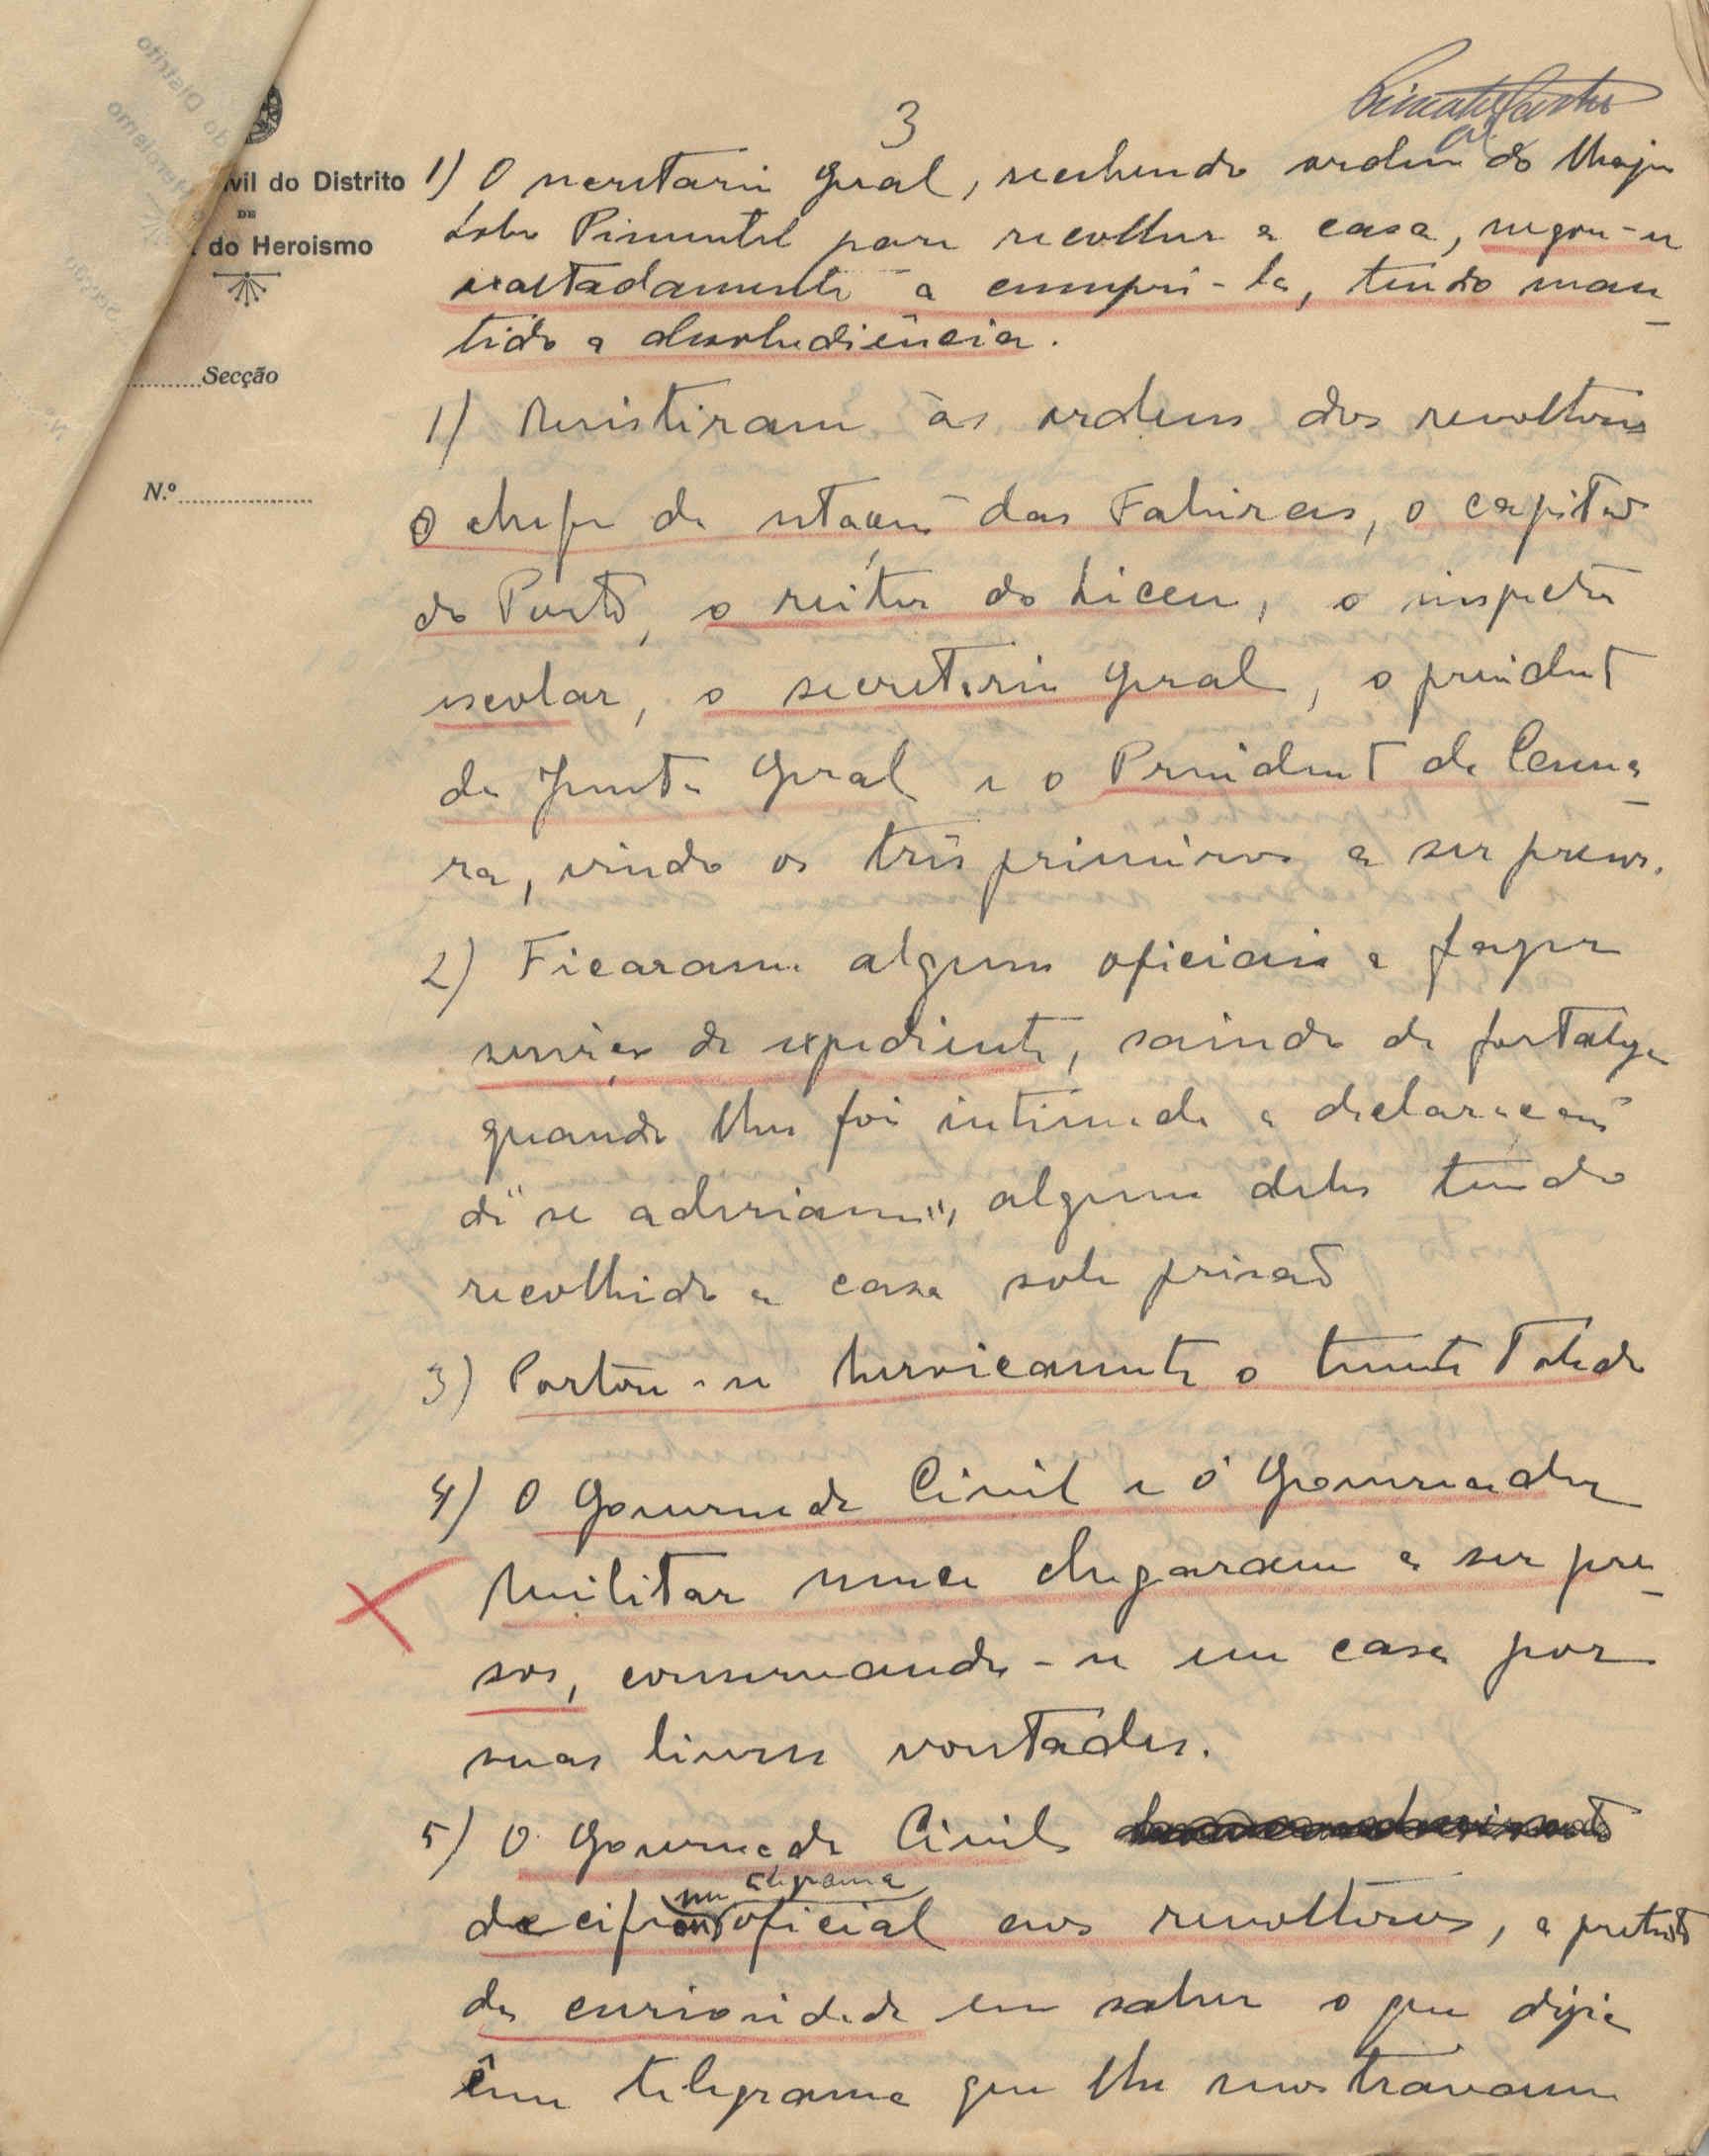 3
ivil do Distrito
DE
do Heroismo
Secção
N.º
1) O secretario geral, recebendo ordem do Major
Lobo Pimentel para recolher a casa, negou-se
exaltadamente a cumpri-la, tendo man_
tido a desobediência.
1) Resistiram às ordens dos revoltosos
o chefe da estação das Faleiras, o capitão
do Porto, o reitor do Liceu, o inspector
escolar, o secretario geral, o president
da Junta Geral e o President da Cama_
ra, vindo os três primeiros a ser presos.
2) Ficaram alguns oficiais a fazer
serviço de expediente, saindo da fortaleza
quando lhes foi intimada a declaração
de "se aderiam", alguns deles tendo
recolhido a casa sob prisão
3) Portou-se heroicamente o tenente Toledo
4) O Governador Civil e o Governador
Militar nunca chegaram a ser pre_
sos, conservando-se em casa por
suas livres vontades.
5) O Governador Civil
num telegrama
decifrou oficial aos revoltosos, a pretexto
da curiosidade em saber o que dizia
êm telegrama que lhe mostravam